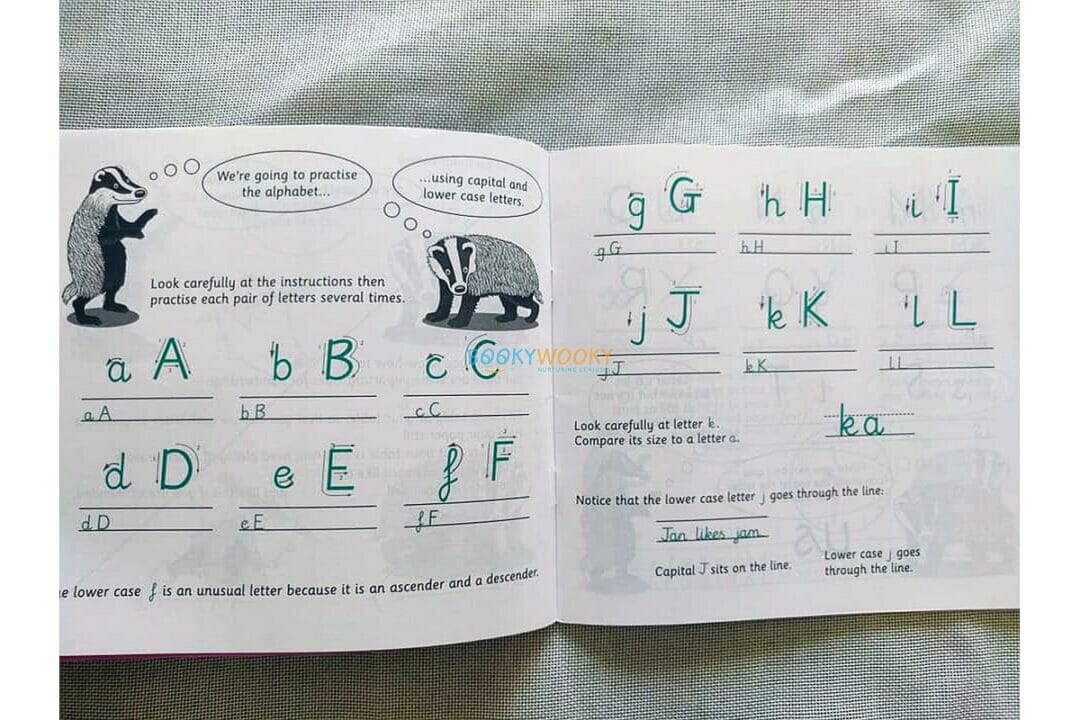 We're going to practise
the alphabet...
...using capital and
lower case letters.
Look carefully at the instructions then
practise each pair of letters several times.
a A b B c C
a A b B c C
d D e E f F
d D e E f F
lower case f is an unusual letter because it is an ascender and a descender.
BOOKYWOOKY
g G h H i I
g G h H i I
j J k K l L
j J k K l L
Look carefully at letter k.
Compare its size to a letter a.
ka
Notice that the lower case letter j goes through the line:
Jan likes jam
Capital J sits on the line.
Lower case j goes
through the line.